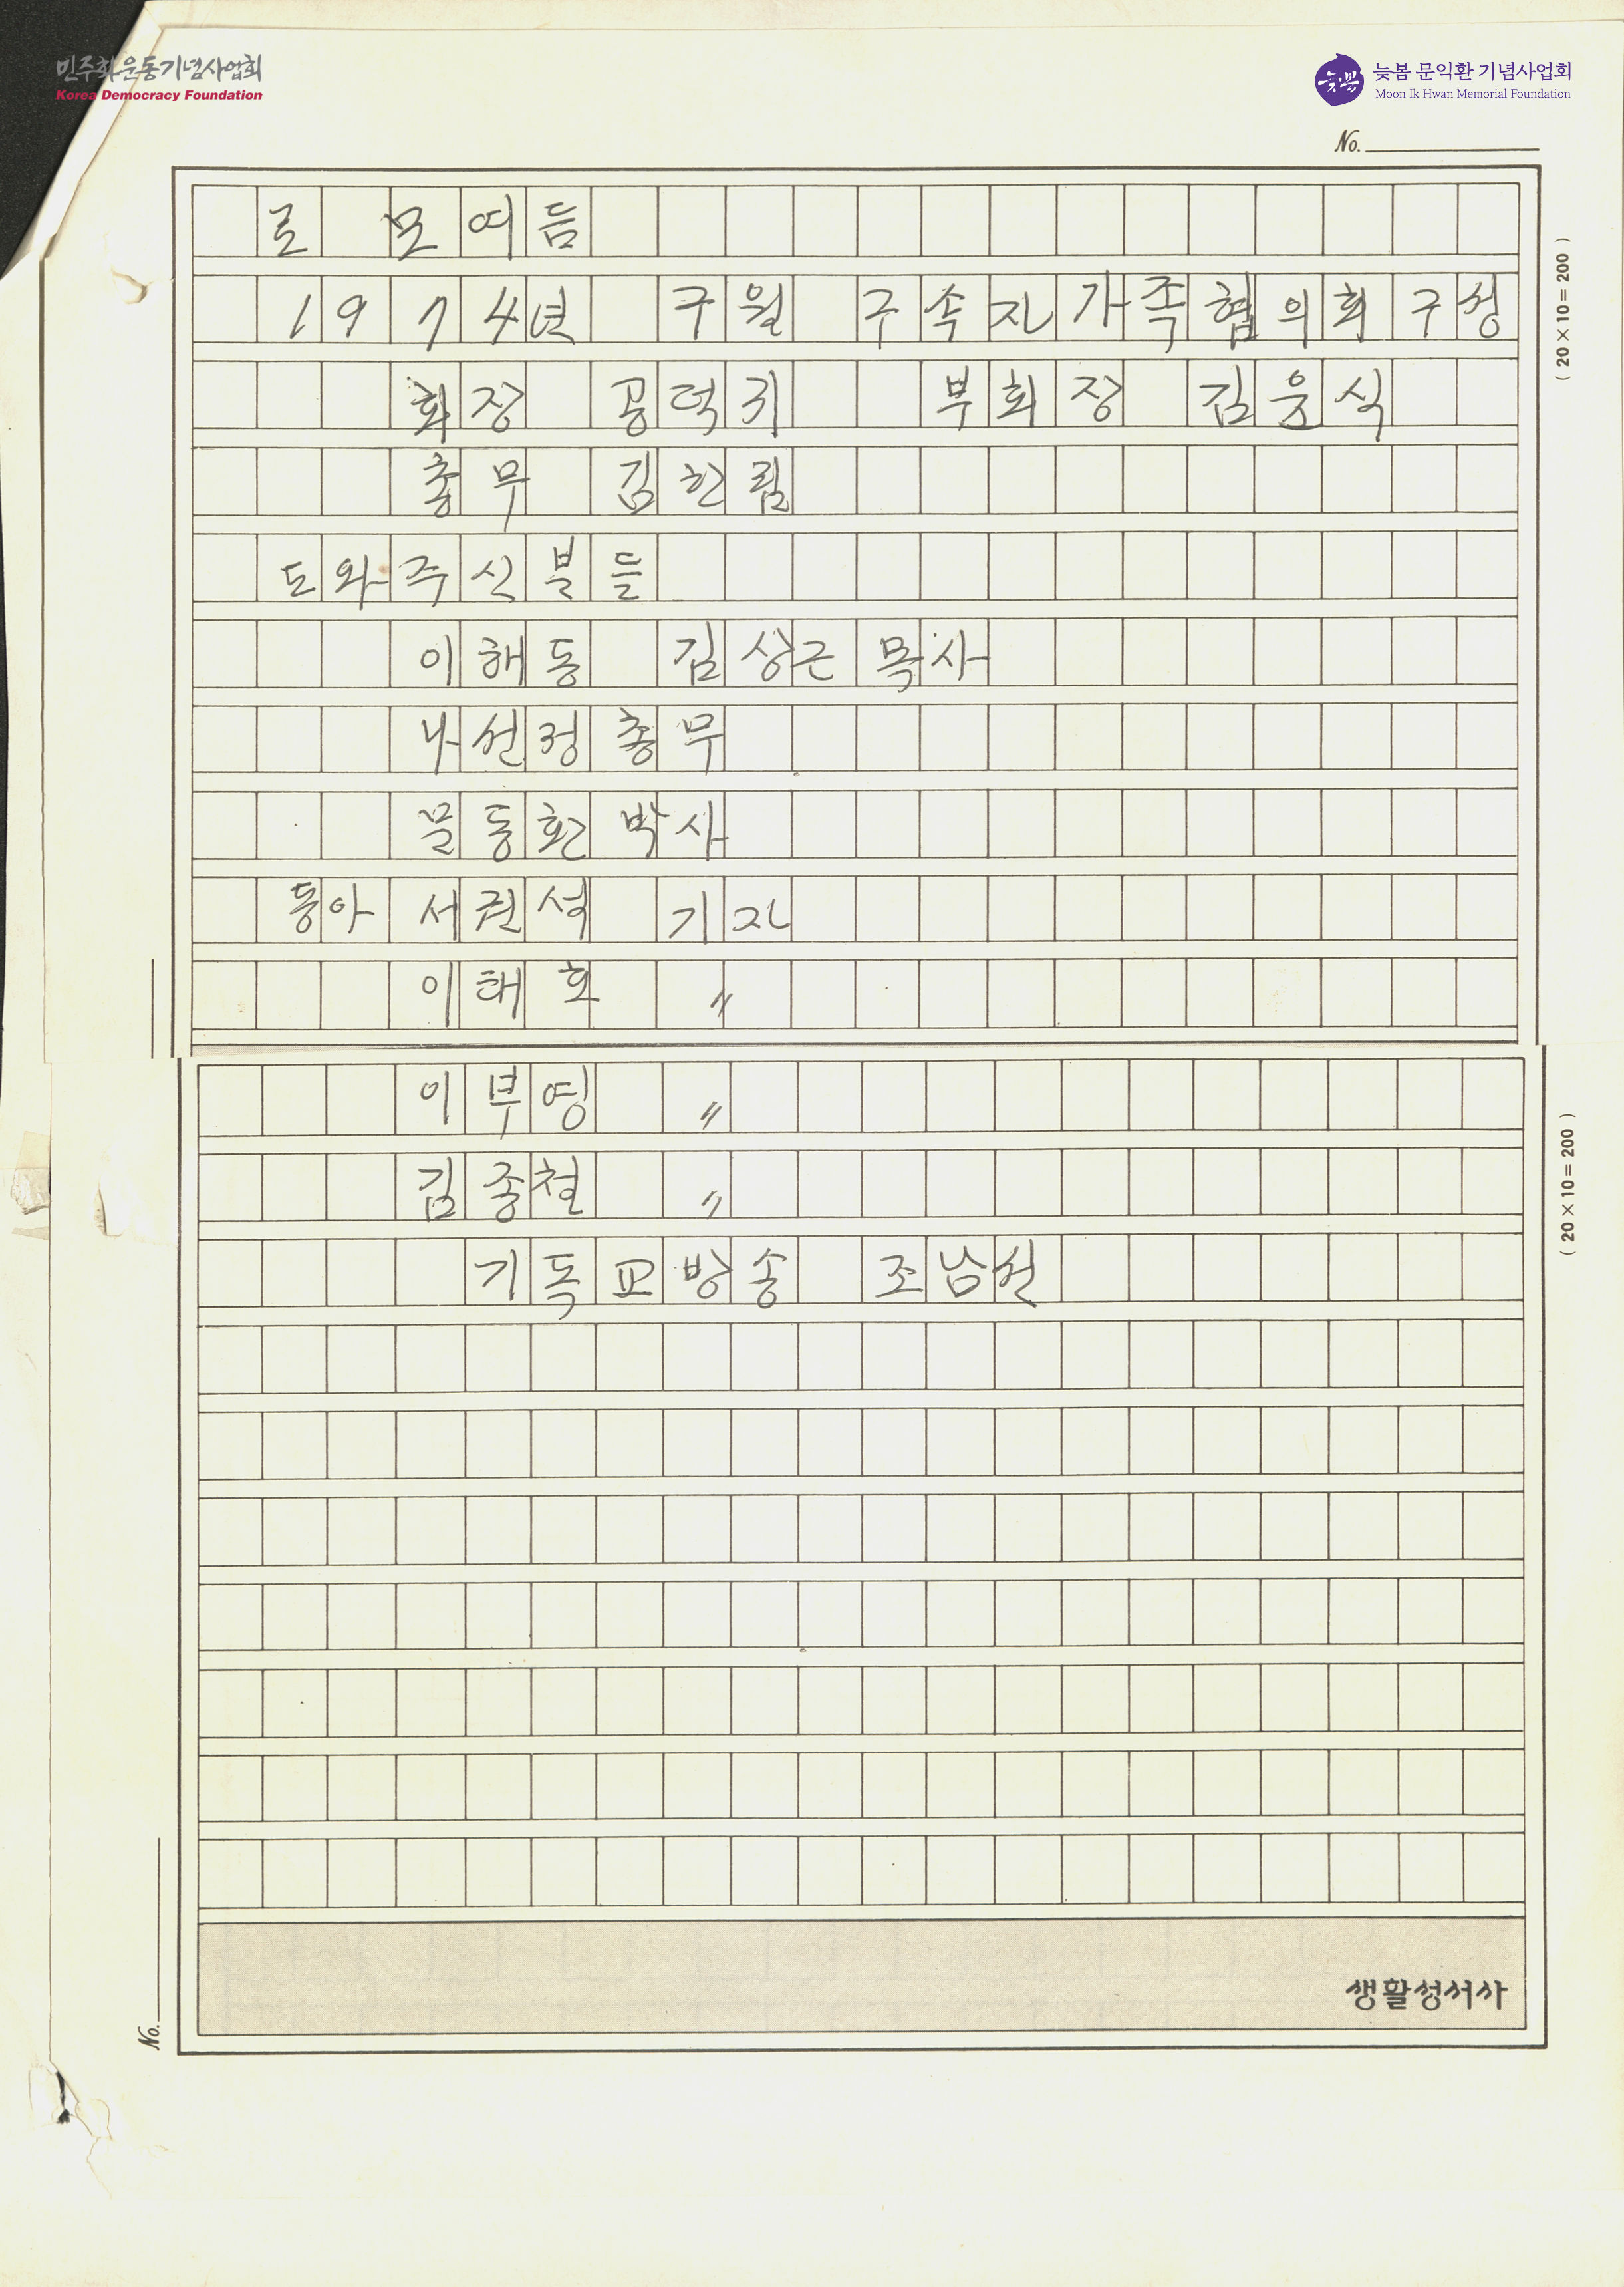 민주화운동기념사업회
Korea Democracy Foundation
늦봄
늦봄 문익환 기념사업회
Moon Ik Hwan Memorial Foundation
No.
로 모여듬
1974년 구월 구속자가족협의회구성
회장 공덕귀 부회장 김윤식
총무 김한림
도와주신분들
이해동 김상근 목사
나선정총무
문동환박사
동아 서권석 기자
이태호 〃
( 20 × 10 = 200 )
이부영 〃
김종철 〃
기독교방송 조남천
( 20 × 10 = 200 )
생활성서사
No.